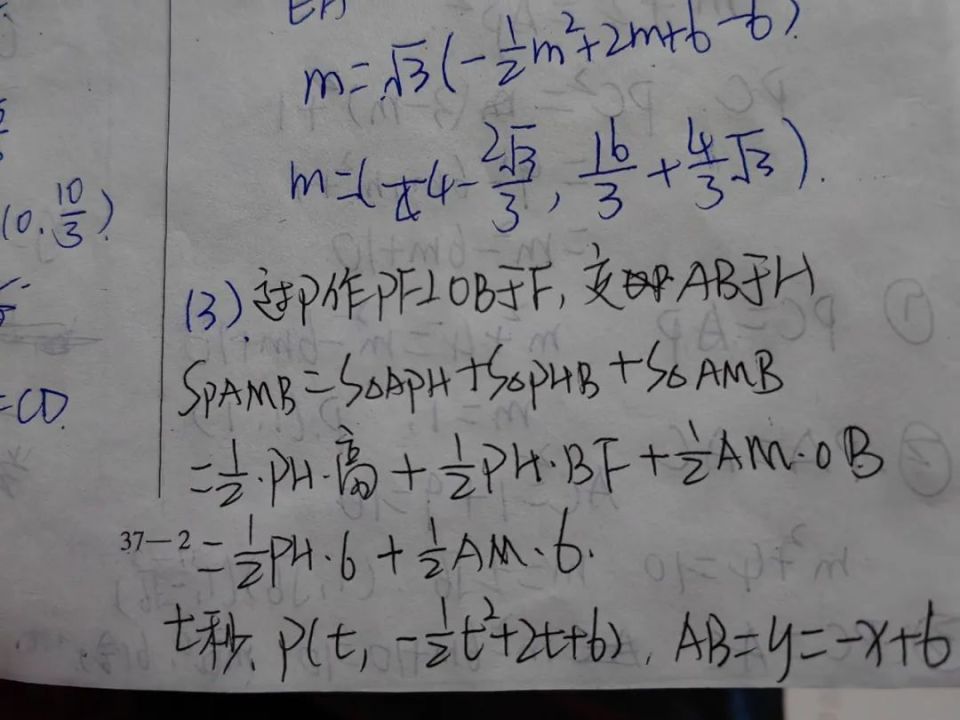 EA
m=√3(-½m²+2m+6-6)
m=(4-2√3/3, 16/3+4/3√3).
(10,10/3)
(3)过P作PF⊥OB于F,交AB于H
=CD
SPAMB=S△APH+S△PHB+S△AMB
=½·PH·高+½PH·BF+½AM·OB
37—2
=½PH·6+½AM·6.
t秒,P(t,-½t²+2t+6),AB=y=-x+6